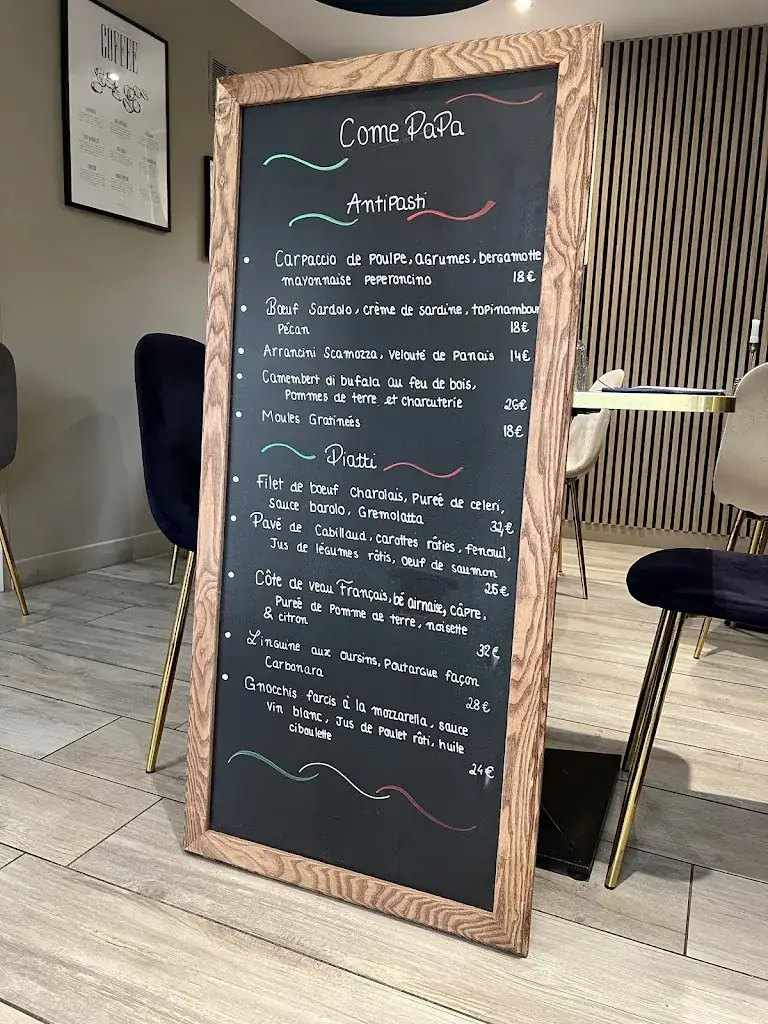 COFFEE
Come PaPa
AntiPasti
Carpaccio de Poulpe, agrumes, bergamotte
mayonnaise Peperoncino 18€
Bœuf Sardolo, crème de sardine, topinambour
Pécan 18€
Arrancini Scamozza, Velouté de Panais 14€
Camembert di bufala au feu de bois,
Pommes de terre et charcuterie 26€
Moules Gratinées 18€
Piatti
Filet de bœuf charolais, Pureé de celeri,
Sauce barolo, Gremolatta 32€
Pavé de Cabillaud, carottes rôties, fenouil,
Jus de légumes rôtis, oeuf de saumon
25€
Côte de veau Français, bé airnaise, câpre,
Pureé de Pomme de terre, noisette
& citron 32€
Linguine aux oursins, Poutargue façon
Carbonara 28€
Gnocchis farcis à la mozzarella, sauce
Vin blanc, Jus de Poulet rôti, huile
ciboulette 24€